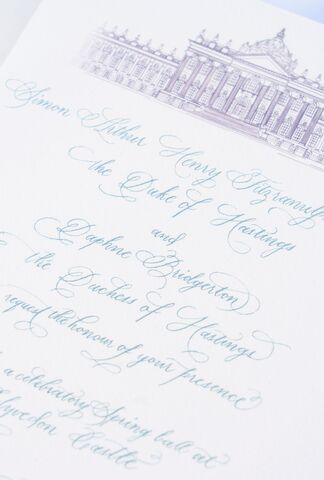 Simon Arthur Henry Fitzranulph
the Duke of Hastings
and
Daphne Bridgerton
the Duchess of Hastings
request the honours of your presence
a celebratory Spring ball at
Clyvedon Castle